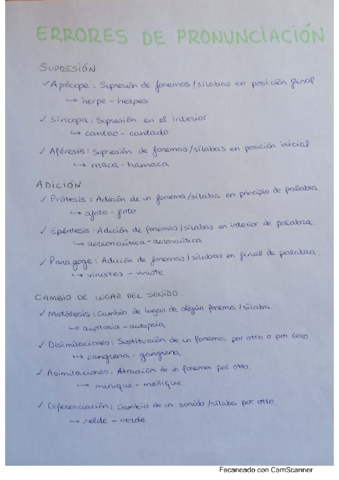 ERRORES DE PRONUNCIACIÓN
SUPRESIÓN
✓ Apócope: Supresión de fonemas/sílabas en posición final
→ herpe - herpes
✓ Síncopa: Supresión en el interior
→ cantao - cantado
✓ Aféresis: Supresión de fonemas/sílabas en posición inicial
→ maca - hamaca
ADICIÓN
✓ Prótesis: Adición de un fonema/sílaba en principio de palabra
→ afoto - foto
✓ Epéntesis: Adición de fonemas/sílabas en interior de palabra
→ aereonáutica - aeronáutica
✓ Paragoge: Adición de fonemas/sílabas en final de palabra.
→ vinistes - viniste
CAMBIO DE LUGAR DEL SONIDO
✓ Metátesis: Cambio de lugar de algún fonema/sílaba
→ - autopsia
✓ Disimilaciones: Sustitución de un fonema por otro o por cero
→ cangrena - gangrena
✓ Asimilaciones: Atracción de un fonema por otro.
→ miñique - meñique
✓ Diferenciación: Cambio de un sonido/sílaba por otro.
→ - verde
Escaneado con CamScanner